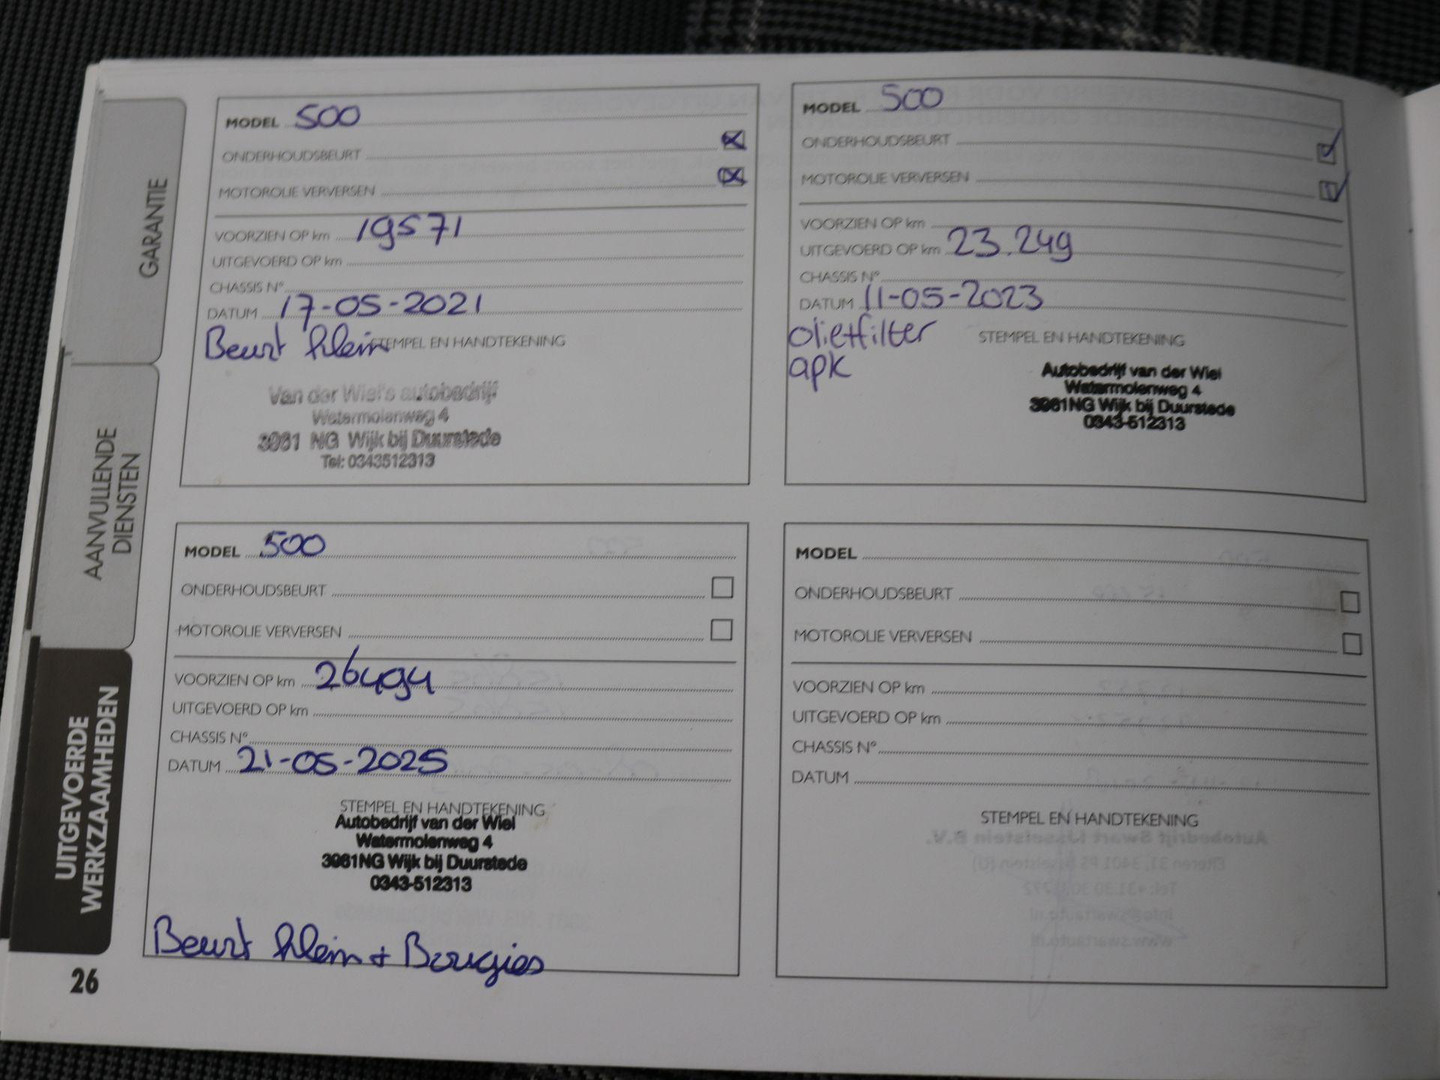 GARANTIE
AANVULLENDE
DIENSTEN
UITGEVOERDE
WERKZAAMHEDEN
26
MODEL 500
ONDERHOUDSBEURT
MOTOROLIE VERVERSEN
VOORZIEN OP km 19571
UITGEVOERD OP km
CHASSIS N°
DATUM 17-05-2021
Beurt klein
STEMPEL EN HANDTEKENING
Van der Wiel's autobedrijf
Watermolenweg 4
3961 NG Wijk bij Duurstede
Tel: 0343512313
MODEL 500
ONDERHOUDSBEURT
MOTOROLIE VERVERSEN
VOORZIEN OP km
UITGEVOERD OP km 23.249
CHASSIS N°
DATUM 11-05-2023
olie+filter
STEMPEL EN HANDTEKENING
apk
Autobedrijf van der Wiel
Watermolenweg 4
3961NG Wijk bij Duurstede
0343-512313
MODEL 500
ONDERHOUDSBEURT
MOTOROLIE VERVERSEN
VOORZIEN OP km 26494
UITGEVOERD OP km
CHASSIS N°
DATUM 21-05-2025
STEMPEL EN HANDTEKENING
Autobedrijf van der Wiel
Watermolenweg 4
3961NG Wijk bij Duurstede
0343-512313
Beurt klein + Bougies
MODEL
ONDERHOUDSBEURT
MOTOROLIE VERVERSEN
VOORZIEN OP km
UITGEVOERD OP km
CHASSIS N°
DATUM
STEMPEL EN HANDTEKENING